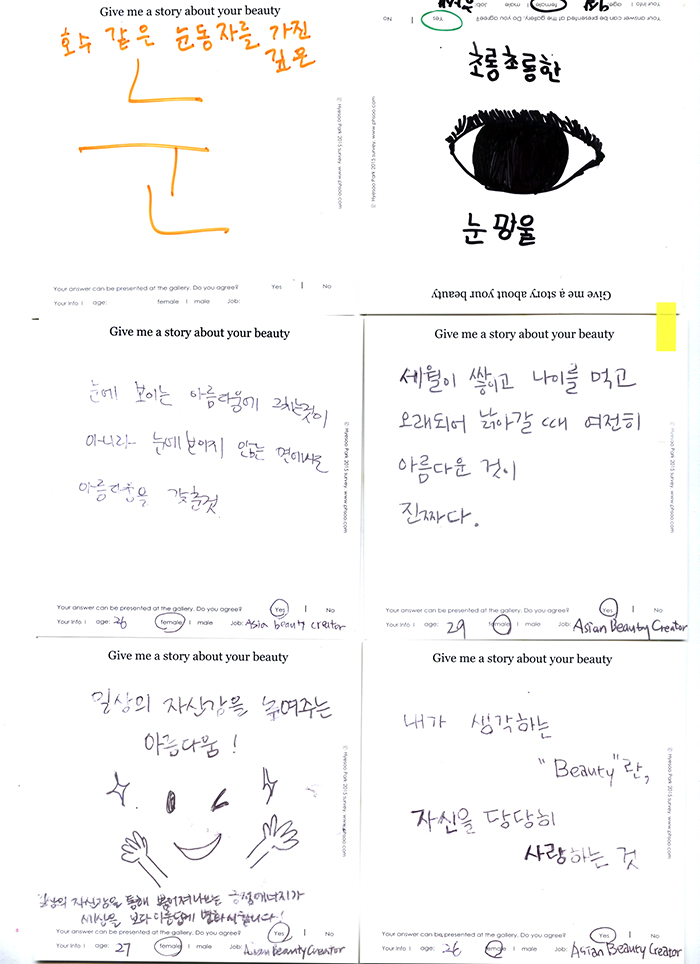 Give me a story about your beauty
호수 같은 눈동자를 가진
깊은
눈
© Hyesoo Park 2015 survey www.phsoo.com
Your answer can be presented at the gallery. Do you agree? Yes | No
Your info | age: female | male Job:
Your info | age: female | male Job:
Your answer can be presented at the gallery. Do you agree? Yes | No
초롱초롱한
눈망울
© Hyesoo Park 2015 survey www.phsoo.com
Give me a story about your beauty
Give me a story about your beauty
눈에 보이는 아름다움에 그치는것이
아니라 눈에보이지 않는 면에서도
아름다움을 갖춘것
© Hyesoo Park 2015 survey www.phsoo.com
Your answer can be presented at the gallery. Do you agree? Yes | No
Your info | age: 26 female | male Job: Asia beauty creator
Give me a story about your beauty
세월이 쌓이고 나이를 먹고
오래되어 낡아갈 때 여전히
아름다운 것이
진짜다.
© Hyesoo Park 2015 survey www.phsoo.com
Your answer can be presented at the gallery. Do you agree? Yes | No
Your info | age: 29 female | male Job: Asian Beauty Creator
Give me a story about your beauty
일상의 자신감을 높여주는
아름다움!
일상의 자신감을 통해 뿜어져나오는 긍정에너지가
세상을 보다 아름답게 변화시킵니다!
© Hyesoo Park 2015 survey www.phsoo.com
Your answer can be presented at the gallery. Do you agree? Yes | No
Your info | age: 27 female | male Job: Asian Beauty Creator
Give me a story about your beauty
내가 생각하는
"Beauty"란,
자신을 당당히
사랑하는 것
© Hyesoo Park 2015 survey www.phsoo.com
Your answer can be presented at the gallery. Do you agree? Yes | No
Your info | age: 26 female | male Job: Asian Beauty Creator